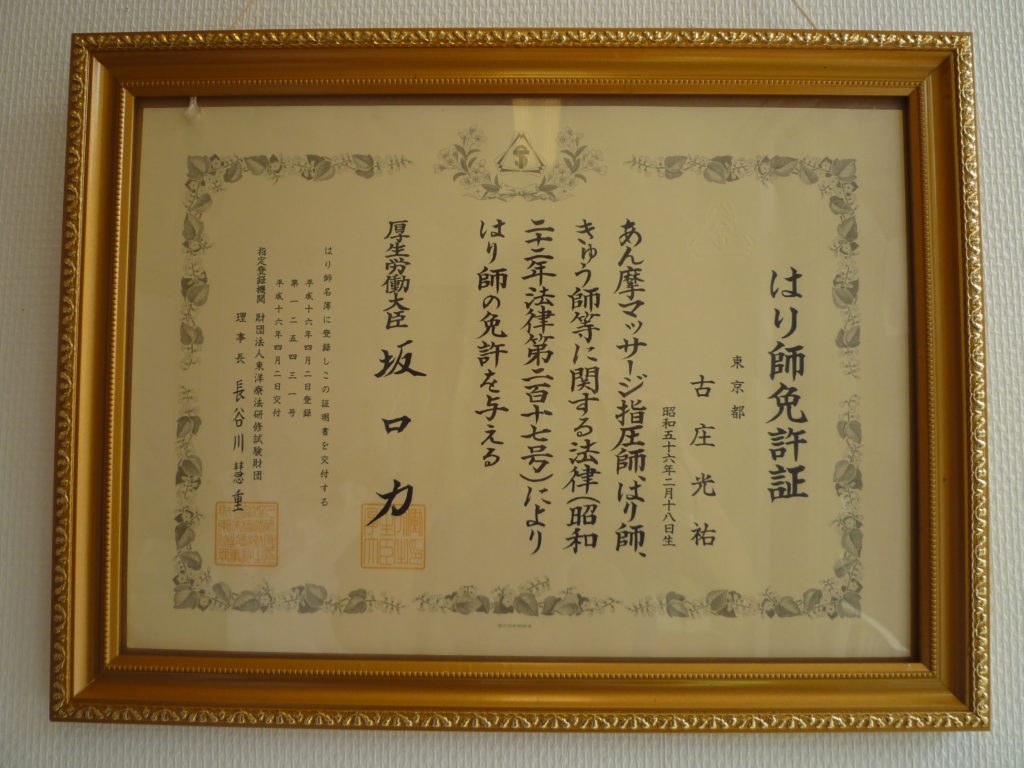 はり師免許証
東京都
古庄光祐
昭和五十六年二月十八日生
あん摩マッサージ指圧師、はり師、
きゅう師等に関する法律(昭和
二十二年法律第二百十七号)により
はり師の免許を与える
厚生労働大臣 坂口力
はり師名簿に登録しこの証明書を交付する
平成十六年四月二日登録
第一二五四三一号
平成十六年四月二日交付
指定登録機関 財団法人東洋療法研修試験財団
理事長 長谷川慧重